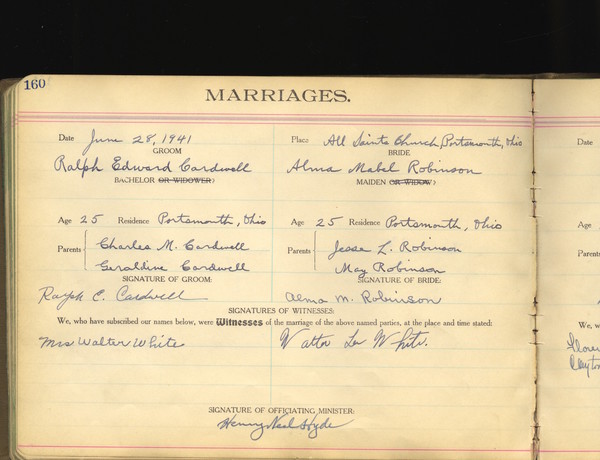 160
MARRIAGES.
Date June 28, 1941 Place All Saints Church, Portsmouth, Ohio Date
GROOM BRIDE
Ralph Edward Cardwell Alma Mabel Robinson
BACHELOR OR WIDOWER? MAIDEN OR WIDOW?
Age 25 Residence Portsmouth, Ohio Age 25 Residence Portsmouth, Ohio Age
Parents Charles M. Cardwell Parents Jesse L. Robinson
Geraldine Cardwell May Robinson
SIGNATURE OF GROOM: SIGNATURE OF BRIDE:
Ralph E. Cardwell Alma M. Robinson
SIGNATURES OF WITNESSES:
We, who have subscribed our names below, were Witnesses of the marriage of the above named parties, at the place and time stated: We, w
Mrs Walter White Walter Le White.
SIGNATURE OF OFFICIATING MINISTER:
Henry Neal Hyde